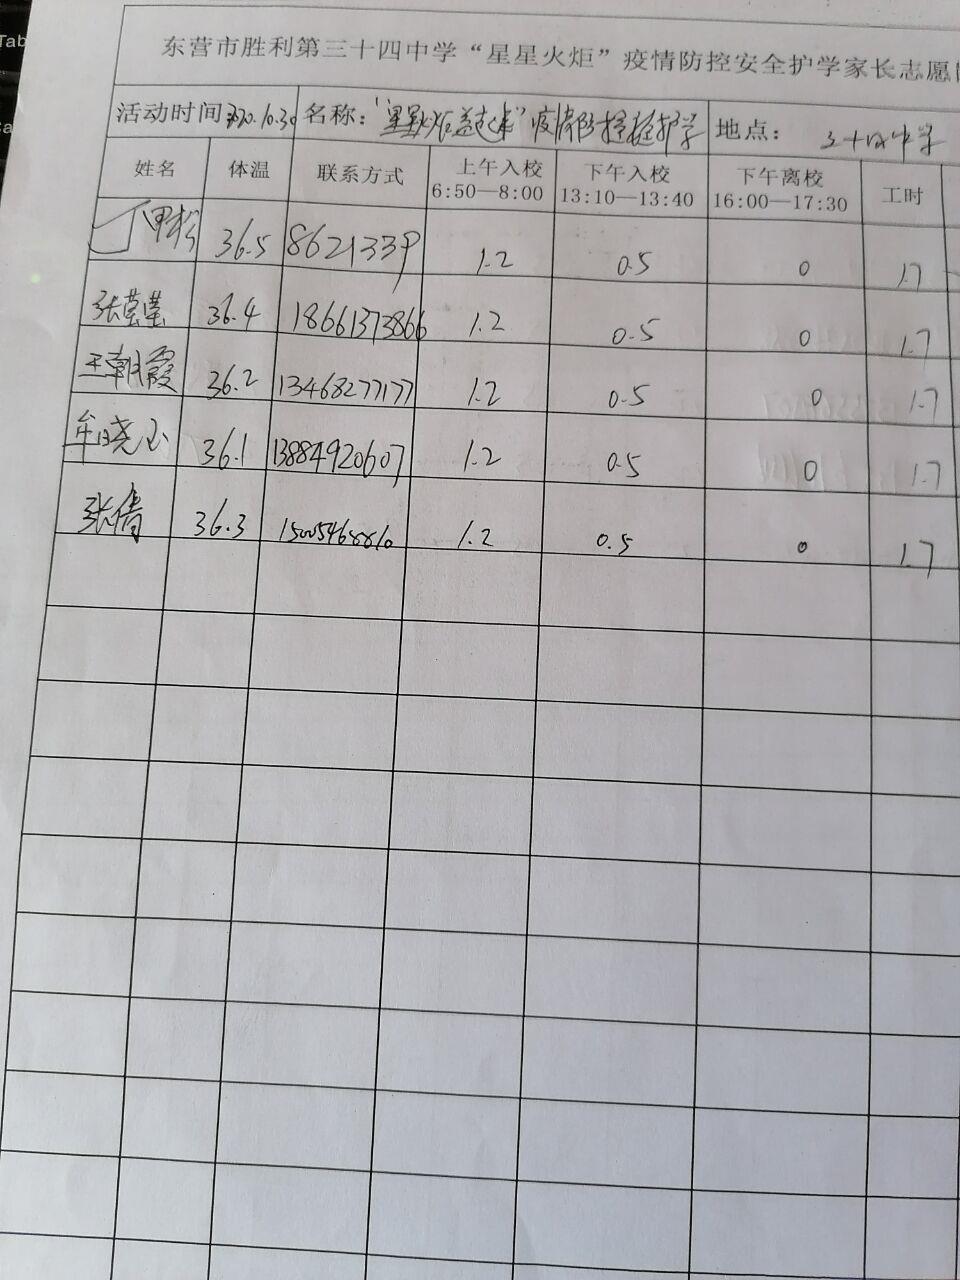 Tab
东营市胜利第三十四中学“星星火炬”疫情防控安全护学家长志愿
活动时间:2020.10.30 名称: “星星火炬益起来”疫情防控护学 地点: 三十四中学
姓名 体温 联系方式 上午入校 6:50—8:00 下午入校 13:10—13:40 下午离校 16:00—17:30 工时
36.5 8621339 1.2 0.5 0 1.7
张莹莹 36.4 18661373866 1.2 0.5 0 1.7
王朝霞 36.2 13468277177 1.2 0.5 0 1.7
牟晓玉 36.1 13884920607 1.2 0.5 0 1.7
张倩 36.3 1.2 0.5 0 1.7